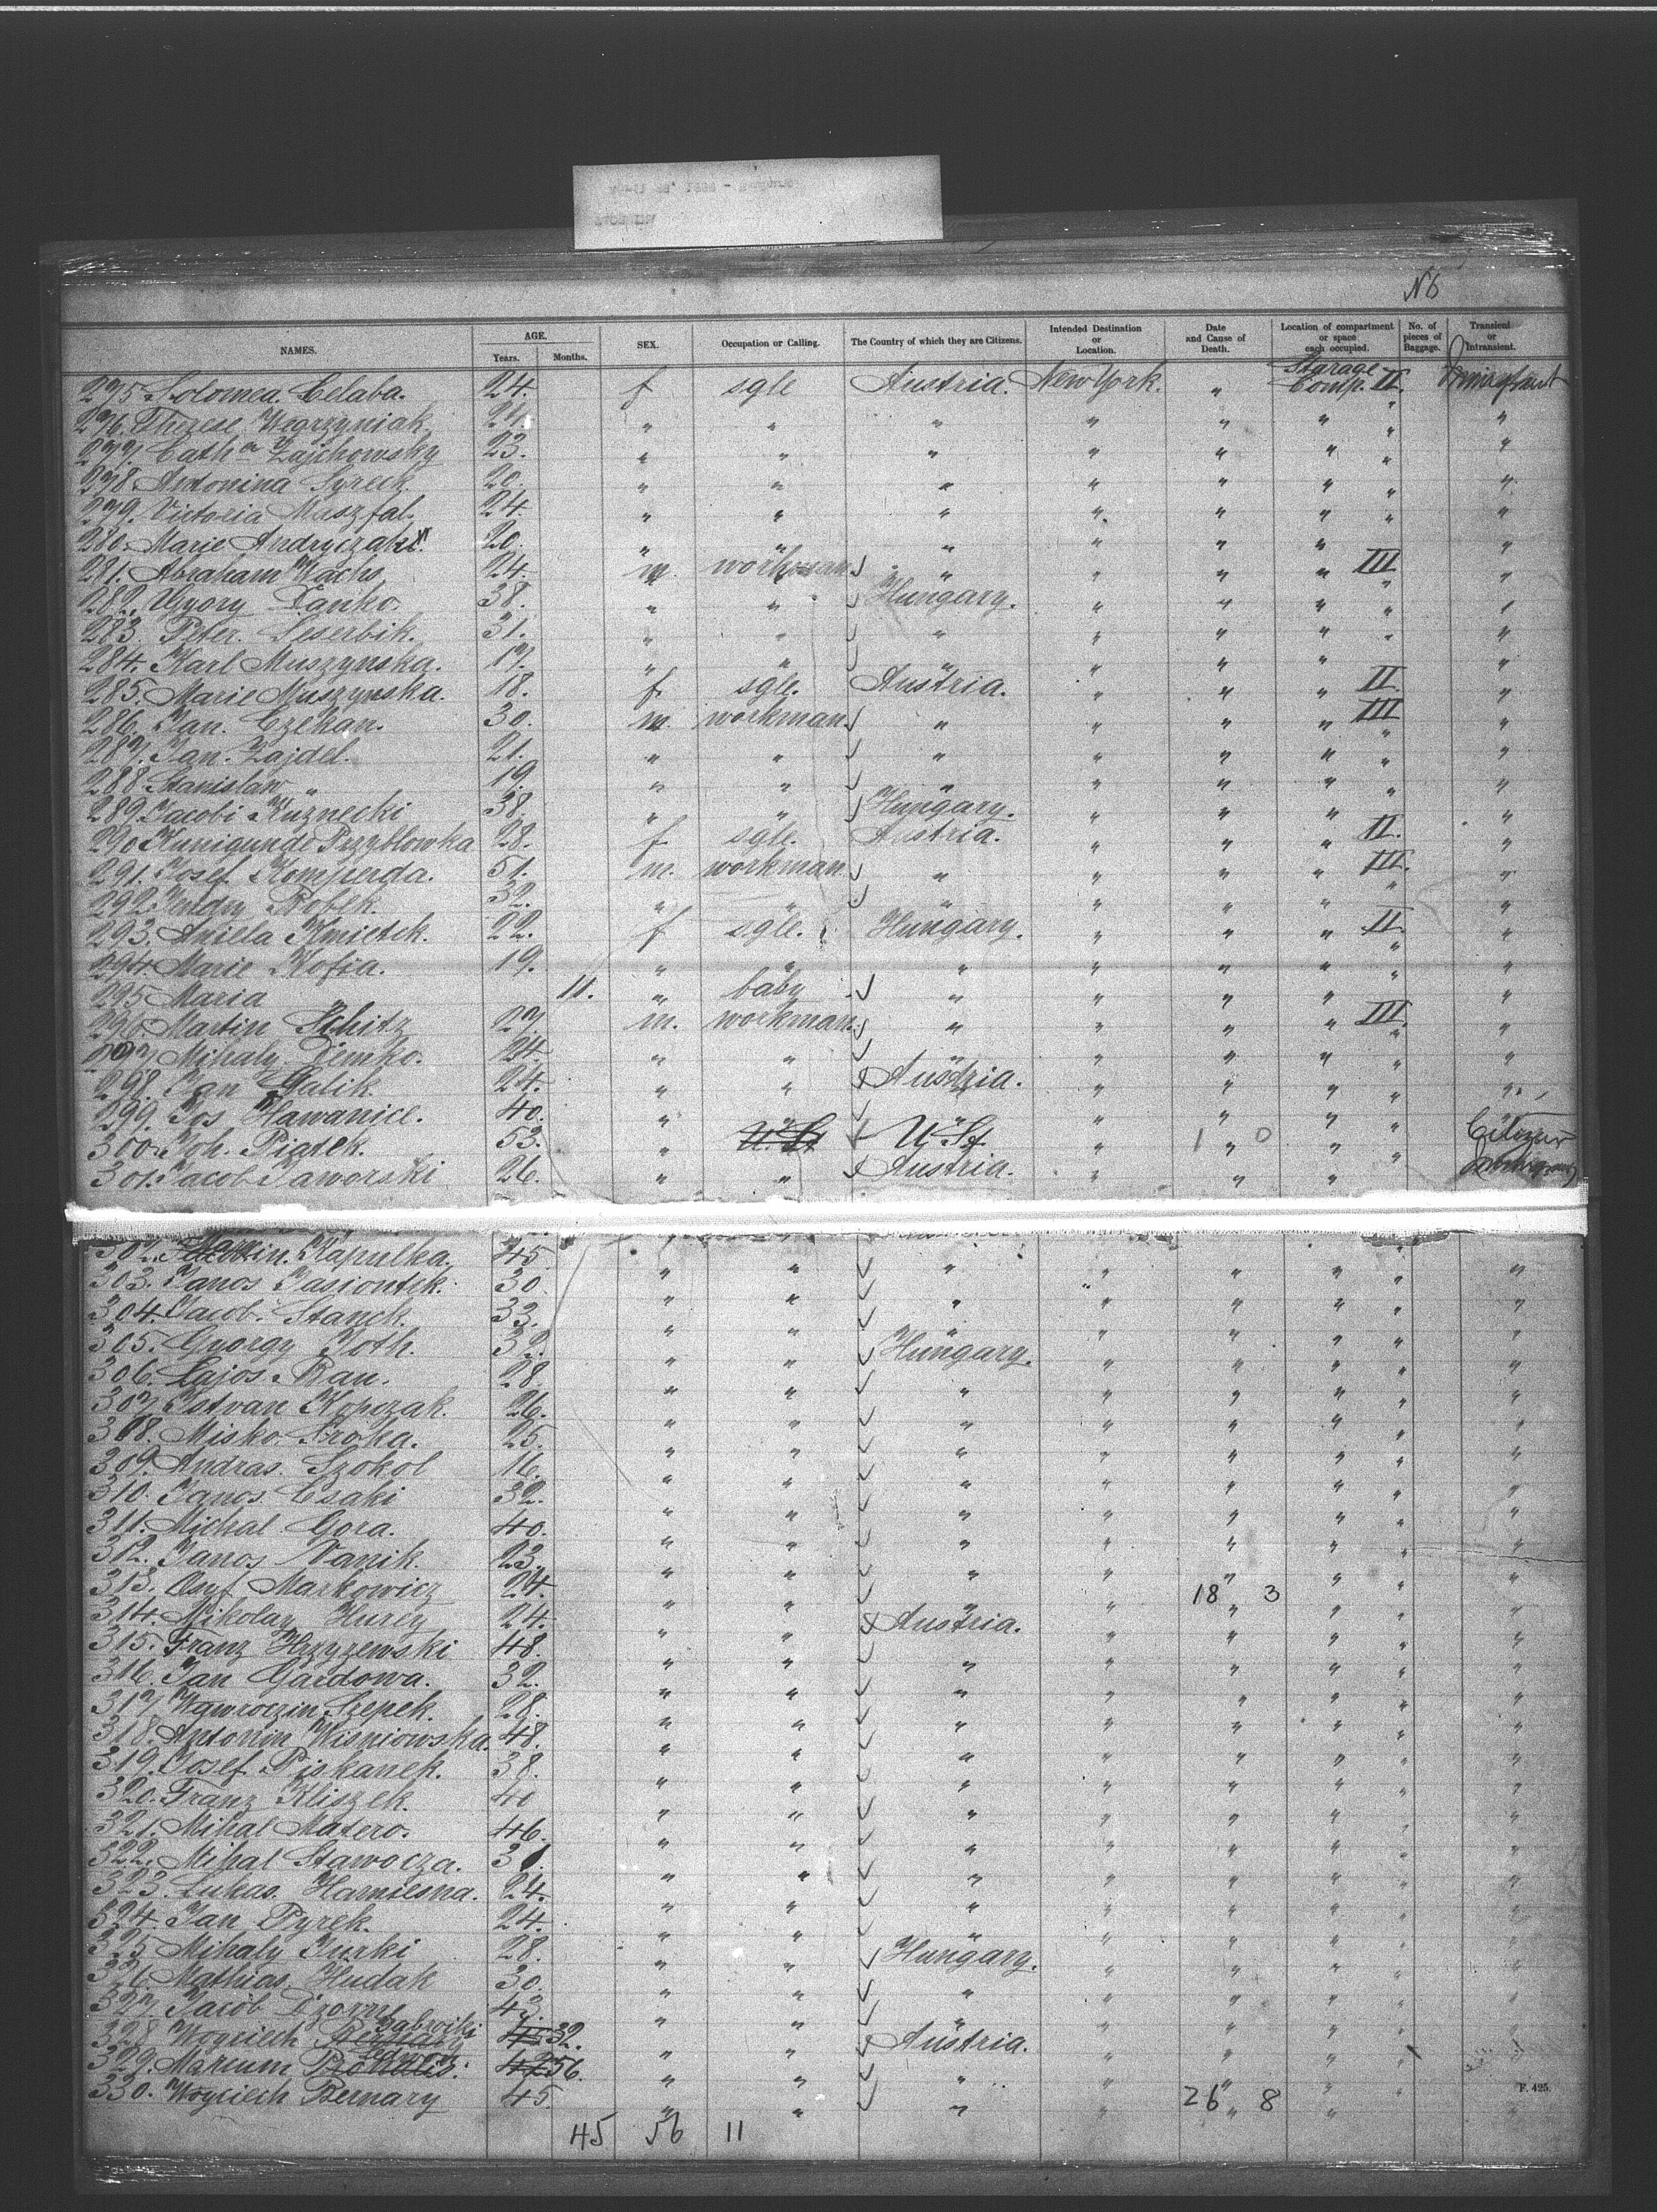 N6
NAMES. AGE. Years. Months. SEX. Occupation or Calling. The Country of which they are Citizens. Intended Destination or Location. Date and Cause of Death. Location of compartment or space each occupied. No. of pieces of Baggage. Transient or Intransient.
275 Solomea Celaba. 24. f sgle Austria. New York. " Starage Comp. II.
276. Therese Wegrzyniak. 21. " " " " " " " "
277 Cath. Zajchowsky 23. " " " " " " " "
278 Antonina Syreck. 20. " " " " " " " "
279. Victoria Maszfal. 24. " " " " " " " "
280. Marie Andryczak 20. " " " " " " "
281. Abraham Wachs, 24. m. workman " " " " III "
282. Gyory Janko. 38. " " Hungary. " " " " "
283. Peter. Seserbik. 31. " " " " " " " "
284. Karl Muszynska. 17. " " " " " " "
285. Marie Muszynska. 18. f. sgle. Austria. " " " II "
286. Jan. Czekan. 30. m. workman " " " " III "
287. Jan. Zajdel. 21. " " " " " " " "
288. Stanislaw " 19. " " " " " " " "
289. Jacobi Kuznecki 38. " " Hungary. " " " " "
290 Kunigunde Przyblowka 28. f sgle. Austria. " " " II. "
291. Josef Komperda. 51. m. workman " " " " III. "
292 Bobek. 32. " " " " " " " "
293. Aniela Kmietek. 22. f sgle. Hungary. " " " II. "
294. Marie Kofia. 19. " " " " " " " "
295 Maria " 11. " baby " " " " " "
296. Martin Schitz 27. m. workman. " " " " III "
297 Mihaly Demko. 24. " " " " " " " "
298. Jan Galik. 24. " " Austria. " " " " "
299. Jos Hawanice. 40. " " " " " " " "
300. Joh. Piatek. 53. " U. St U. St " 1 " 0 " " Citizen
301. Jacob Jaworski 26. " " Austria. " " "
302. Kapulka. 45. " " " " " " " "
303. Janos Jasiontek. 30 " " " " " " " "
304. Jacob. Stanek. 33. " " " " " " " "
305. Gyorgy Toth. 32. " " Hungary. " " " " "
306. Lajos Ran. 28. " " " " " " " "
307 Istvan Kopczak. 26. " " " " " " " "
308. Misko. Sroka. 25. " " " " " " " "
309. Andras. Szokol 16. " " " " " " " "
310. Janos Csaki 32. " " " " " " " "
311. Michal Gora. 40. " " " " " " " "
312. Janos Vanik. 23. " " " " " " " "
313. Markowicz 24. " " " " 18 " 3 " " "
314. Mikolay Hurey 24. " " Austria. " " " " "
315. Franz Hrzyzewski 48. " " " " " " " "
316. Jan Gardowa. 32. " " " " " " " "
317 Wawroczin Szepek. 28. " " " " " " " "
318. Antonin Wisniowska. 48. " " " " " " " "
319. Josef Piskanek. 38. " " " " " " " "
320. Franz Kliszek. 40 " " " " " " " "
321. Mihal Matero. 46. " " " " " " " "
322. Mihal Stawocza. 31. " " " " " " " "
323. Lukas. 24. " " " " " " " "
324. Jan Pyrek. 24. " " " " " " " "
325 Mihaly Turki 28. " " Hungary. " " " " "
326 Mathias. Hudak 30. " " " " " " " "
327. Jacob 43. " " " " " " " "
328. Woyciech 32. " " Austria. " " " " "
329. Marcum 56. " " " " " " " "
330. Woyciech Bernary 45. " " " " 26 " 8 " " "
F. 425.
45 56 11